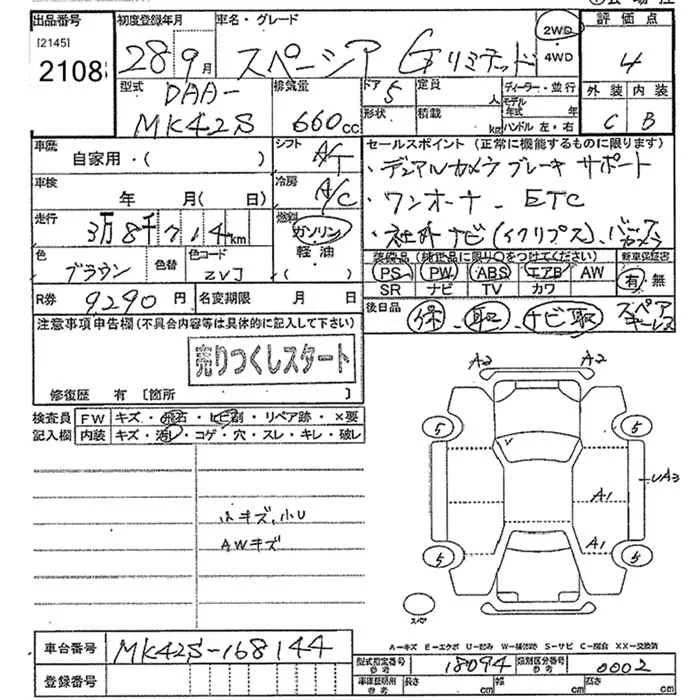 出品番号 初度登録年月 車名・グレード 評価点
[2145] 28 9月 スペーシア Gリミテッド 2WD・4WD 4
2108
型式 排気量 ドア 定員 ディーラー・並行 外装 内装
DAA- 5 人 モデル年式 年
MK42S 660cc 形状 積載 kg ハンドル 左・右 C B
車歴 自家用・( ) シフト A/T セールスポイント(正常に機能するものに限ります)
・デュアルカメラブレーキサポート
車検 年 月( 日) 冷房 A/C ・ワンオーナー ETC
走行 3万8千714km 燃料 ガソリン ・社外ナビ(イクリプス)、バックカメラ
軽油
色 ブラウン 色替 色コード ZVJ ( )
装備品(純正品に限り○をつけてください) 新車保証書
PS PW ABS エアB AW 有・無
SR ナビ TV カワ
R券 9,290円 名変期限 月 日 後日品 保、取、ナビ取 スペアキーレス
注意事項申告欄(不具合内容等は具体的に記入して下さい)
売りつくしスタート
修復歴 有 [箇所 ]
検査員 FW キズ・飛石・ヒビ割・リペア跡・×要
記入欄 内装 キズ・汚レ・コゲ・穴・スレ・キレ・破レ
小キズ、小U
AWキズ
A2 A2
5 5
UA3
A1
A1
5 5
スペア
A-キズ E-エクボ U-凹み W-補修跡 S-サビ C-腐食 XX-交換済
車台番号 MK42S-168144
型式指定番号 参考 18094 類別区分番号 参考 0002
登録番号
車庫証明用 参考 長さ cm 幅 cm 高さ cm